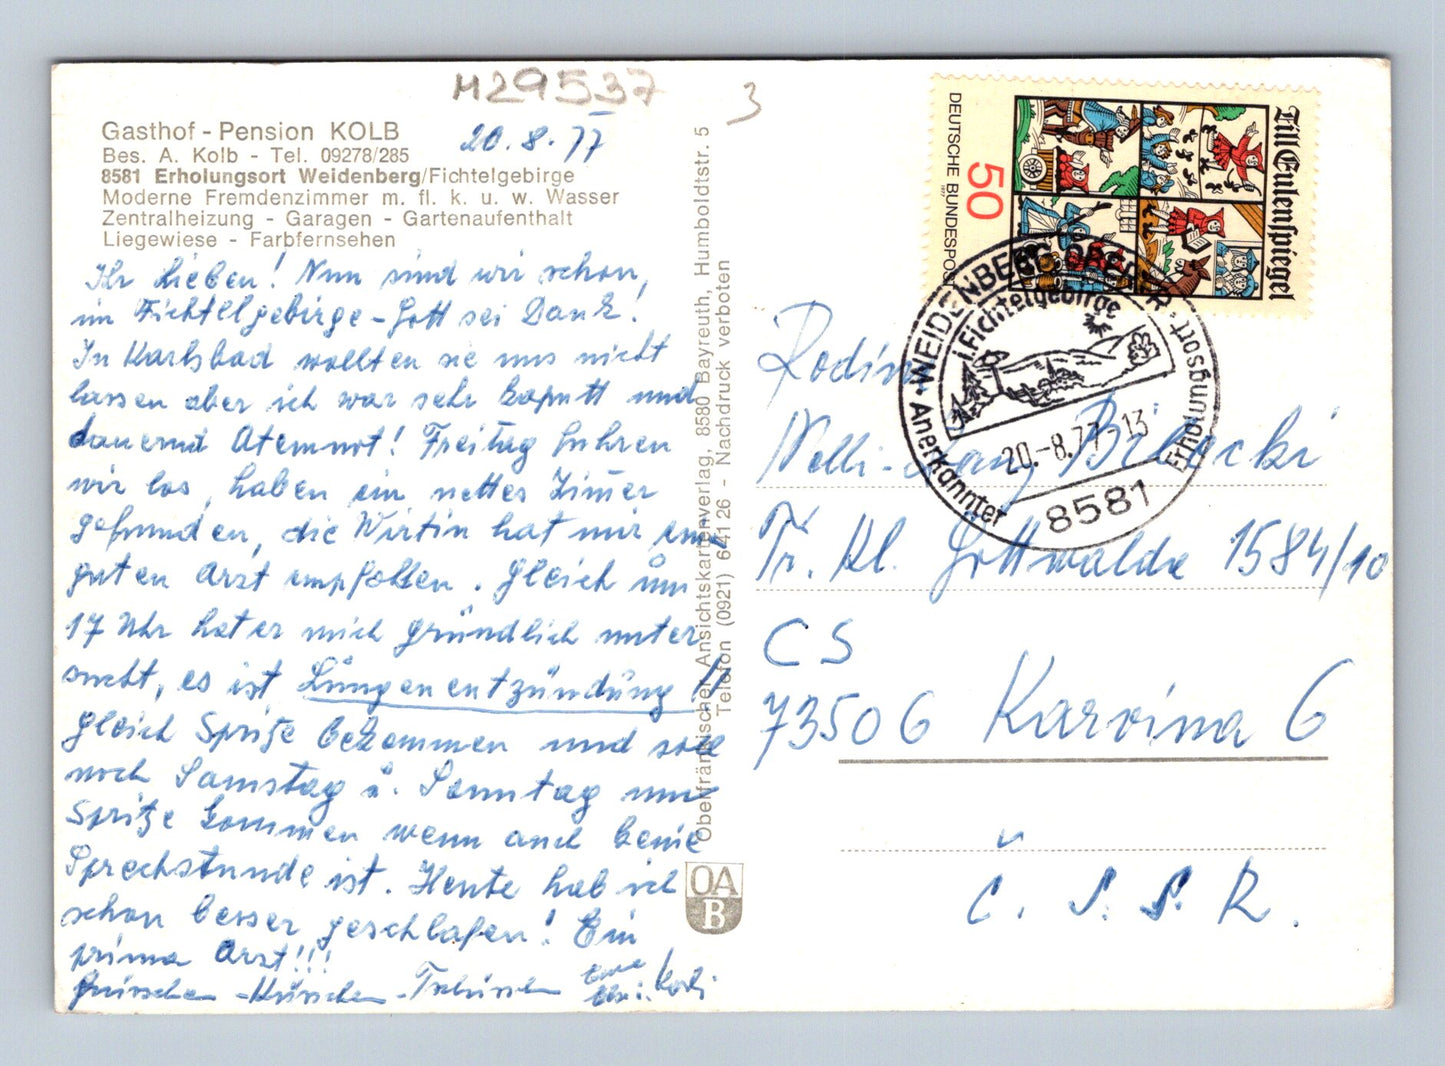 H29537
3
Gasthof - Pension KOLB
Bes. A. Kolb - Tel. 09278/285
8581 Erholungsort Weidenberg/Fichtelgebirge
Moderne Fremdenzimmer m. fl. k. u. w. Wasser
Zentralheizung - Garagen - Gartenaufenthalt
Liegewiese - Farbfernsehen
20.8.77
Ihr Lieben! Nun sind wir schon,
im Fichtelgebirge - Gott sei Dank!
In Karlsbad wollten sie uns nicht
lassen aber ich war sehr kaputt und
dauernd Atemnot! Freitag fuhren
wir los, haben ein nettes Zimmer
gefunden, die Wirtin hat mir ein
guten Arzt empfollen. Gleich um
17 Uhr hat er mich gründlich unter
sucht, es ist Lungenentzündung!!
gleich Spritze bekommen und soll
noch Samstag u. Sonntag um
Spritze kommen wenn auch keine
Sprechstunde ist. Heute hab ich
schon besser geschlafen! Ein
prima Arzt!!!
Obenfränkischer Ansichtskartenverlag, 8580 Bayreuth, Humboldtstr. 5
Telefon (0921) 641 26 - Nachdruck verboten
OA
B
Till Eulenspiegel
DEUTSCHE BUNDESPOST
50
1977
WEIDENBERG
i. Fichtelgebirge
20.-8.77-13
8581
Anerkannter Erholungsort
Tř. Kl. Gottwalda 1584/10
CS
73506 Karvina 6
Č. S. S. R.